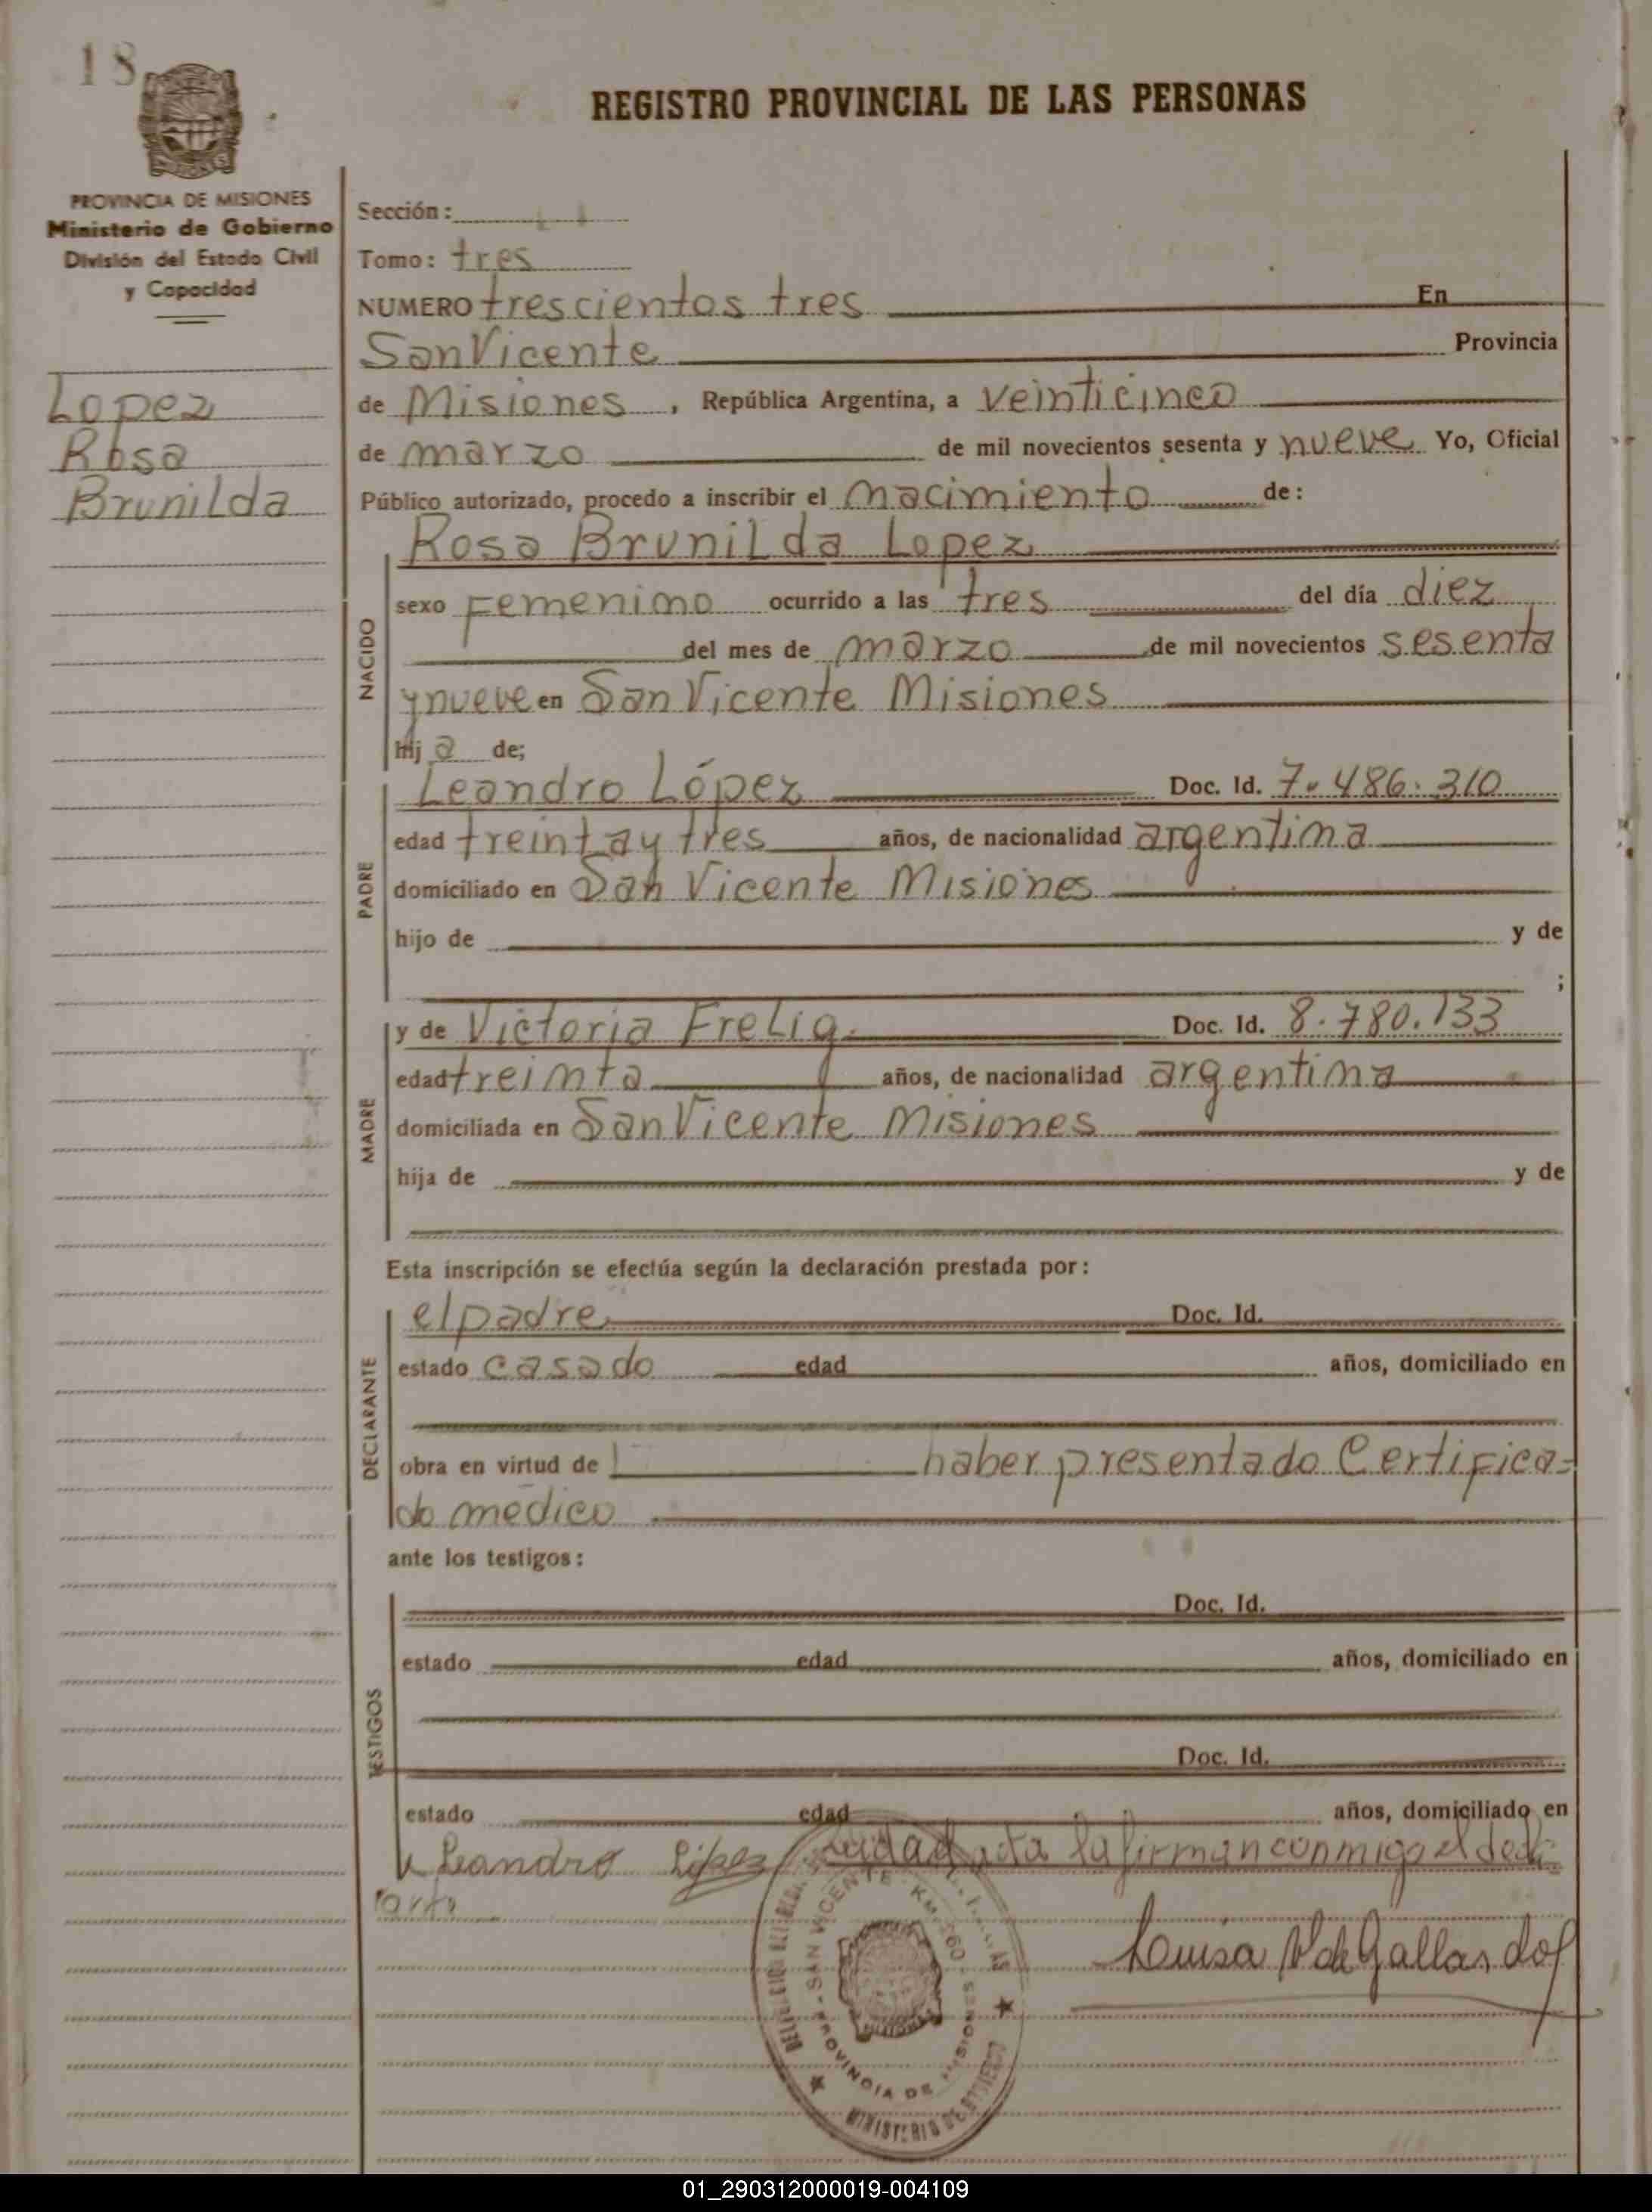 18
REGISTRO PROVINCIAL DE LAS PERSONAS
PROVINCIA DE MISIONES
Ministerio de Gobierno
División del Estado Civil
y Capacidad
Lopez
Rosa
Brunilda
Sección:
Tomo: tres
NUMERO trescientos tres En
San Vicente Provincia
de Misiones, República Argentina, a veinticinco
de marzo de mil novecientos sesenta y nueve Yo, Oficial
Público autorizado, procedo a inscribir el nacimiento de:
Rosa Brunilda Lopez
NACIDO
sexo Femenino ocurrido a las tres del día diez
del mes de marzo de mil novecientos sesenta
y nueve en San Vicente Misiones
hij a de;
PADRE
Leandro López Doc. Id. 7.486.310
edad treinta y tres años, de nacionalidad argentina
domiciliado en San Vicente Misiones
hijo de y de
;
MADRE
y de Victoria Frelig Doc. Id. 8.780.133
edad treinta años, de nacionalidad argentina
domiciliada en San Vicente Misiones
hija de y de
Esta inscripción se efectúa según la declaración prestada por:
DECLARANTE
el padre Doc. Id.
estado casado edad años, domiciliado en
obra en virtud de haber presentado Certifica=
do medico
ante los testigos:
TESTIGOS
Doc. Id.
estado edad años, domiciliado en
Doc. Id.
estado edad años, domiciliado en
Leandro López acta la firman conmigo el decla
rante
SAN VICENTE - KM. 260
PROVINCIA DE MISIONES
MINISTERIO DE GOBIERNO
Luisa V de Gallardo
01_290312000019-004109